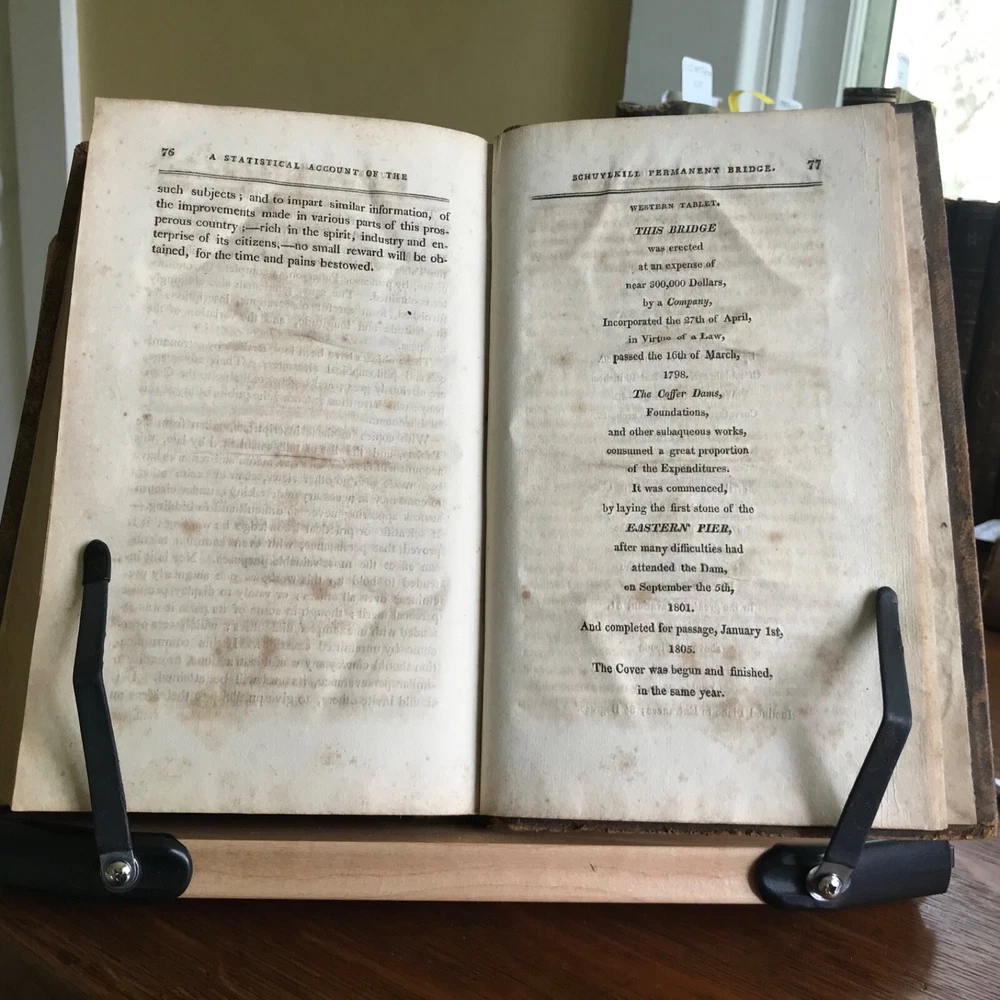 76 A STATISTICAL ACCOUNT OF THE
such subjects; and to impart similar information, of
the improvements made in various parts of this pros-
perous country;—rich in the spirit, industry and en-
terprise of its citizens,—no small reward will be ob-
tained, for the time and pains bestowed.
SCHUYLKILL PERMANENT BRIDGE. 77
WESTERN TABLET.
THIS BRIDGE
was erected
at an expense of
near 300,000 Dollars,
by a Company,
Incorporated the 27th of April,
in Virtue of a Law,
passed the 16th of March,
1798.
The Coffer Dams,
Foundations,
and other subaqueous works,
consumed a great proportion
of the Expenditures.
It was commenced,
by laying the first stone of the
EASTERN PIER,
after many difficulties had
attended the Dam,
on September the 5th,
1801.
And completed for passage, January 1st,
1805.
The Cover was begun and finished,
in the same year.